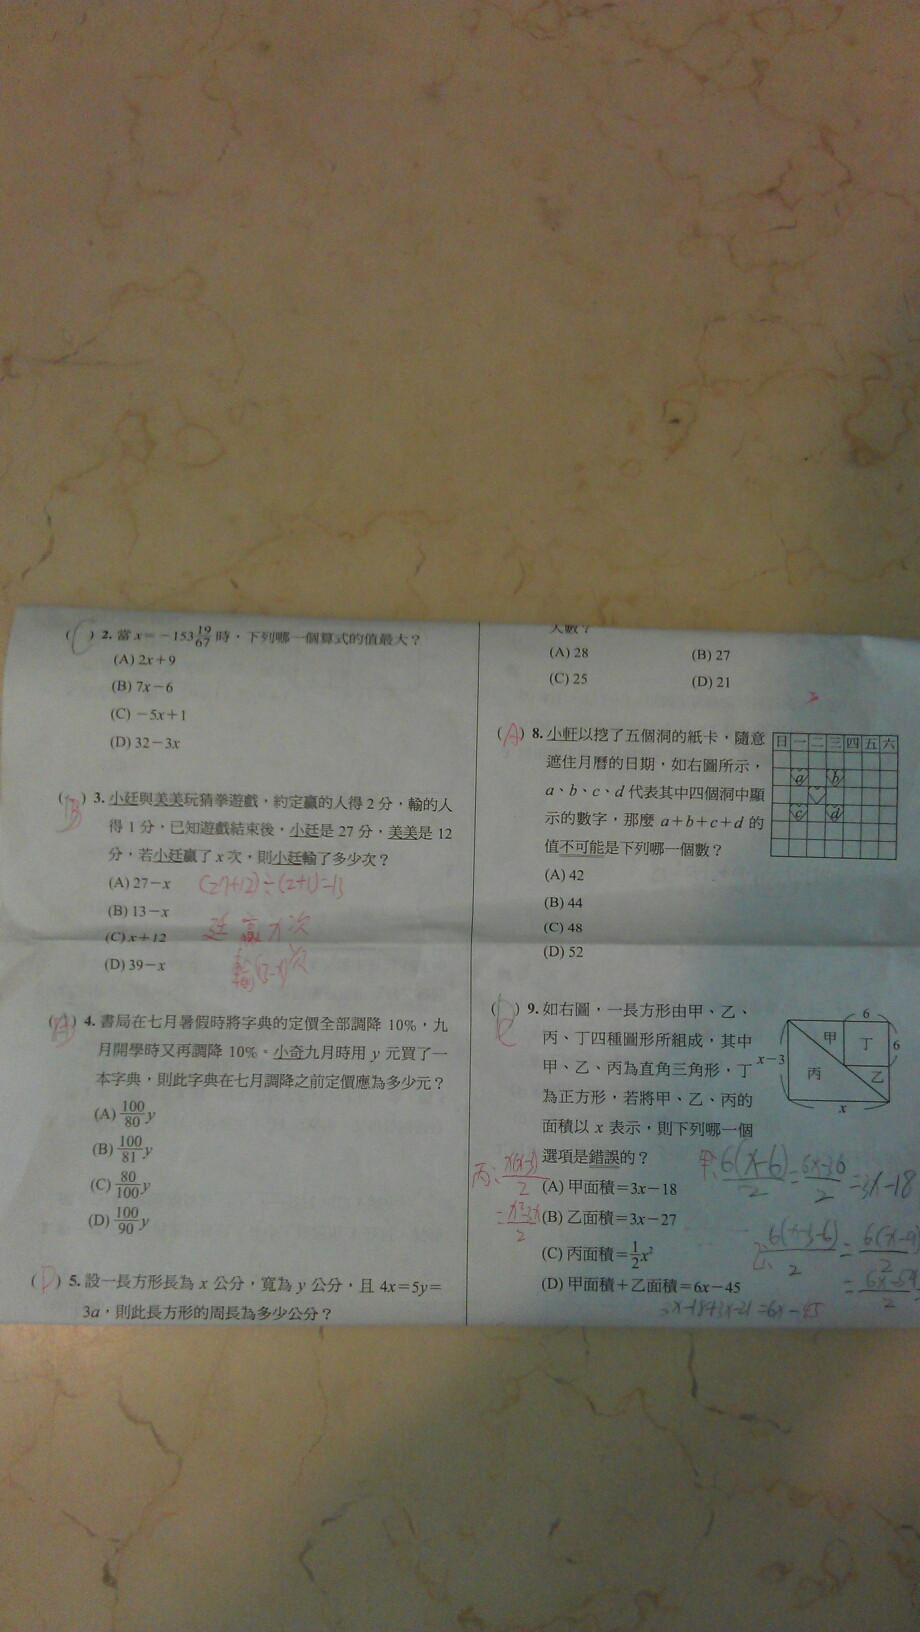 (C) 2. 當 x=-153 19/67 時,下列哪一個算式的值最大?
(A) 2x+9
(B) 7x-6
(C) -5x+1
(D) 32-3x
(B) 3. 小廷與美美玩猜拳遊戲,約定贏的人得 2 分,輸的人
得 1 分,已知遊戲結束後,小廷是 27 分,美美是 12
分,若小廷贏了 x 次,則小廷輸了多少次?
(A) 27-x
(27+12)÷(2+1)=13
(B) 13-x
廷 贏 x 次
(C) x+12
(D) 39-x
輸(13-x)次
( ) 4. 書局在七月暑假時將字典的定價全部調降 10%,九
月開學時又再調降 10%。小奇九月時用 y 元買了一
本字典,則此字典在七月調降之前定價應為多少元?
(A) 100/80 y
(B) 100/81 y
(C) 80/100 y
(D) 100/90 y
(D) 5. 設一長方形長為 x 公分,寬為 y 公分,且 4x=5y=
3a,則此長方形的周長為多少公分?
人數?
(A) 28
(B) 27
(C) 25
(D) 21
(A) 8. 小軒以挖了五個洞的紙卡,隨意
遮住月曆的日期,如右圖所示,
a、b、c、d 代表其中四個洞中顯
示的數字,那麼 a+b+c+d 的
值不可能是下列哪一個數?
(A) 42
(B) 44
(C) 48
(D) 52
日 一 二 三 四 五 六
a b
c d
( ) 9. 如右圖,一長方形由甲、乙、
丙、丁四種圖形所組成,其中
甲、乙、丙為直角三角形,丁
為正方形,若將甲、乙、丙的
面積以 x 表示,則下列哪一個
選項是錯誤的?
6
甲 丁 6
x-3
丙 乙
x
(A) 甲面積=3x-18
(B) 乙面積=3x-27
(C) 丙面積=1/2 x²
(D) 甲面積+乙面積=6x-45
丙: x(x-3)/2
甲: 6(x-6)/2 = 6x-36/2 = 3x-18
6(x-3-6)/2 = 6(x-9)/2
= 6x-54/2 =